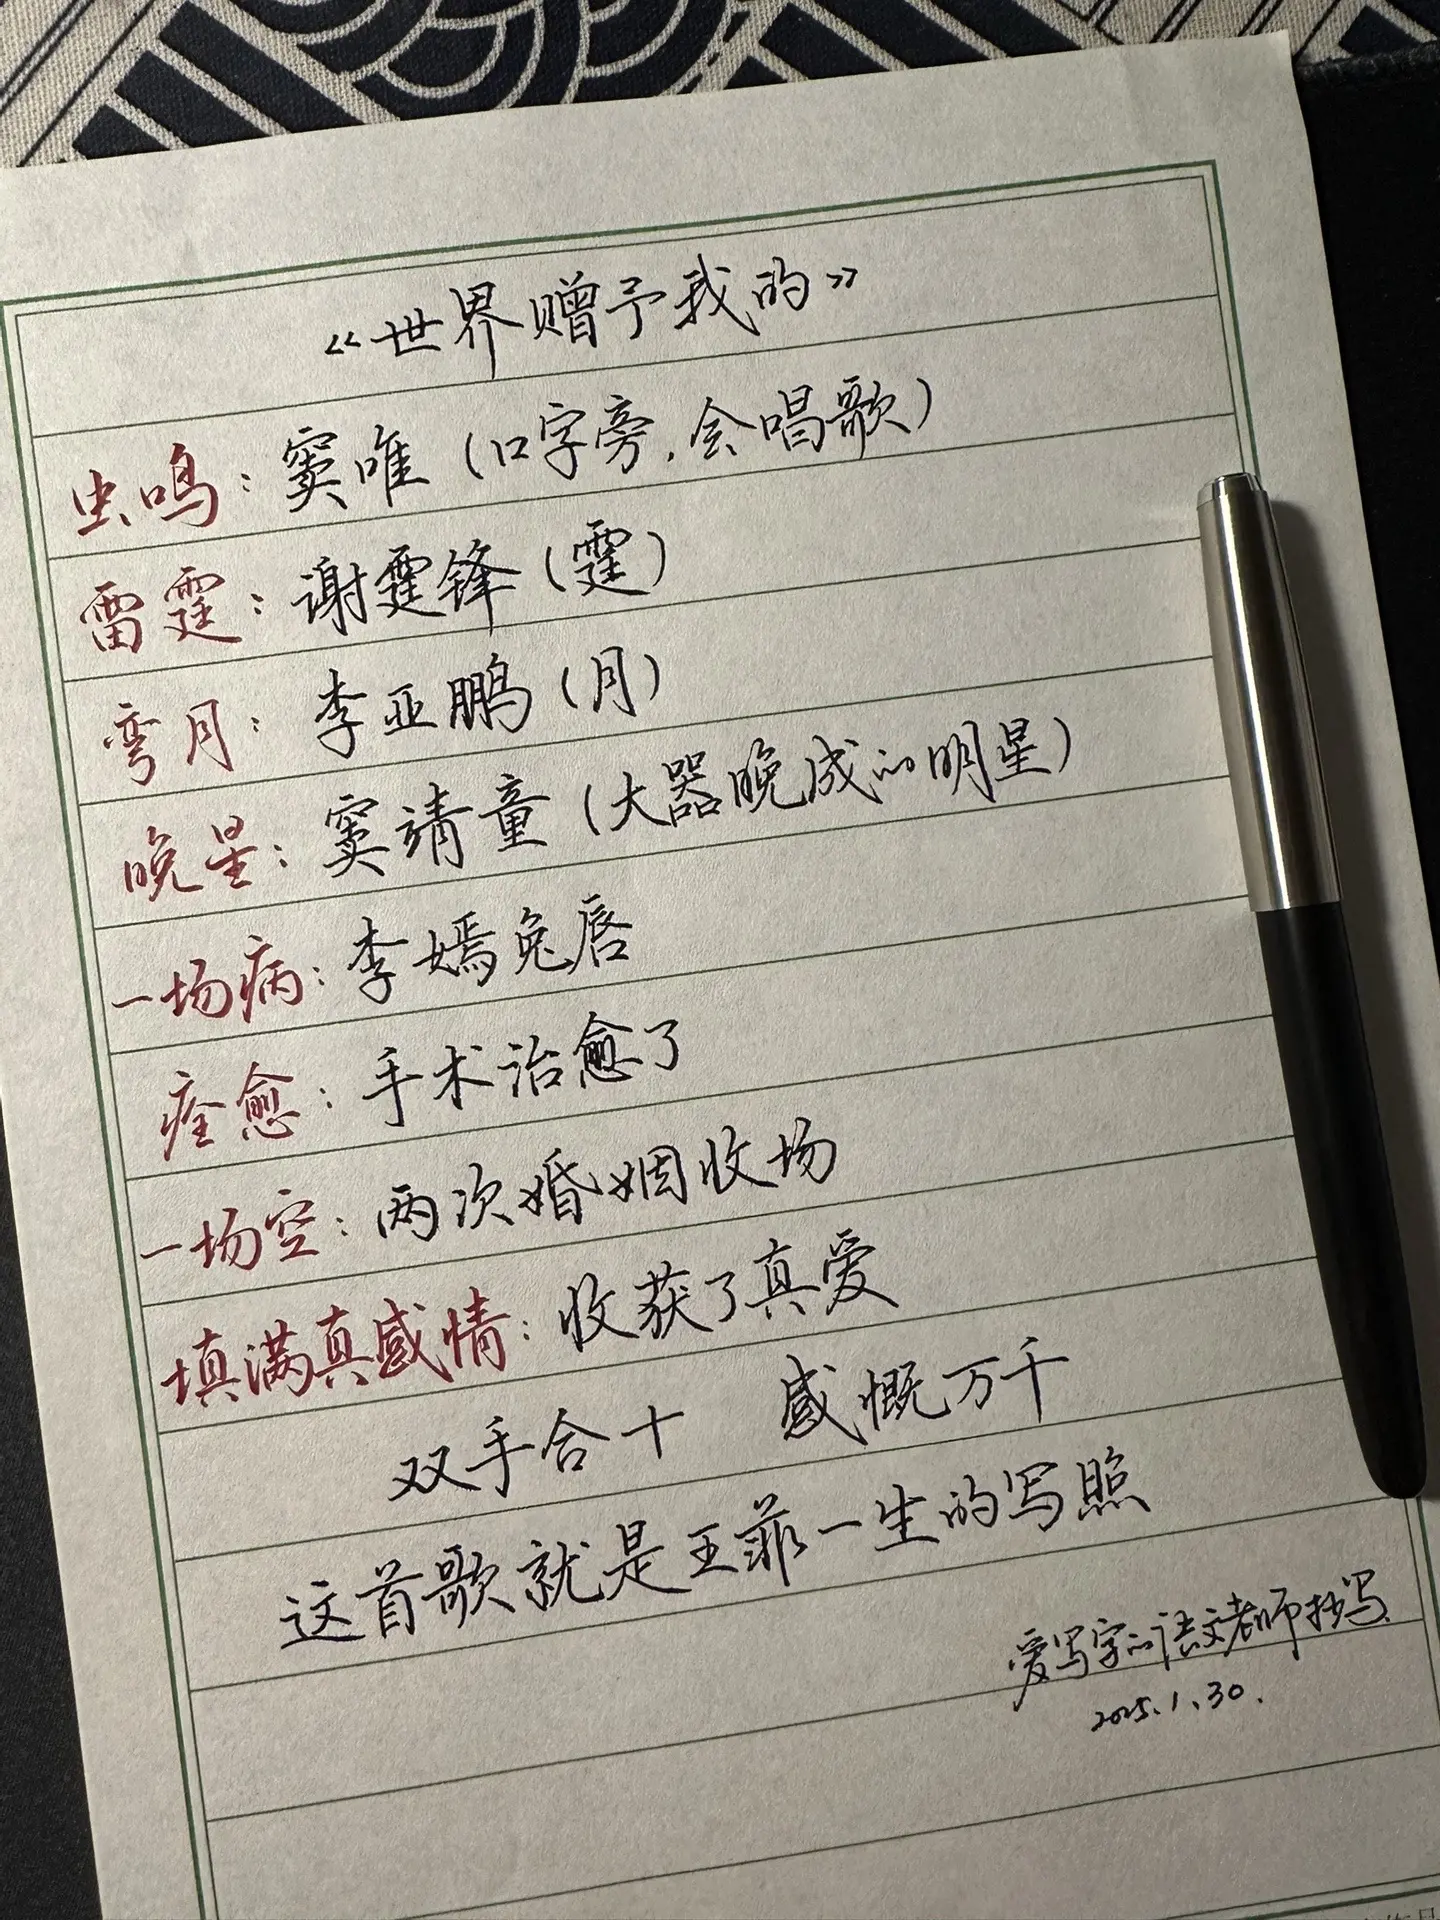 《世界赠予我的》
虫鸣：窦唯（口字旁，会唱歌）
雷霆：谢霆锋（霆）
弯月：李亚鹏（月）
晚星：窦靖童（大器晚成的明星）
一场病：李嫣兔唇
痊愈：手术治愈了
一场空：两次婚姻收场
填满真感情：收获了真爱
双手合十 感慨万千
这首歌就是王菲一生的写照
爱写字的语文老师抄写
2025.1.30.